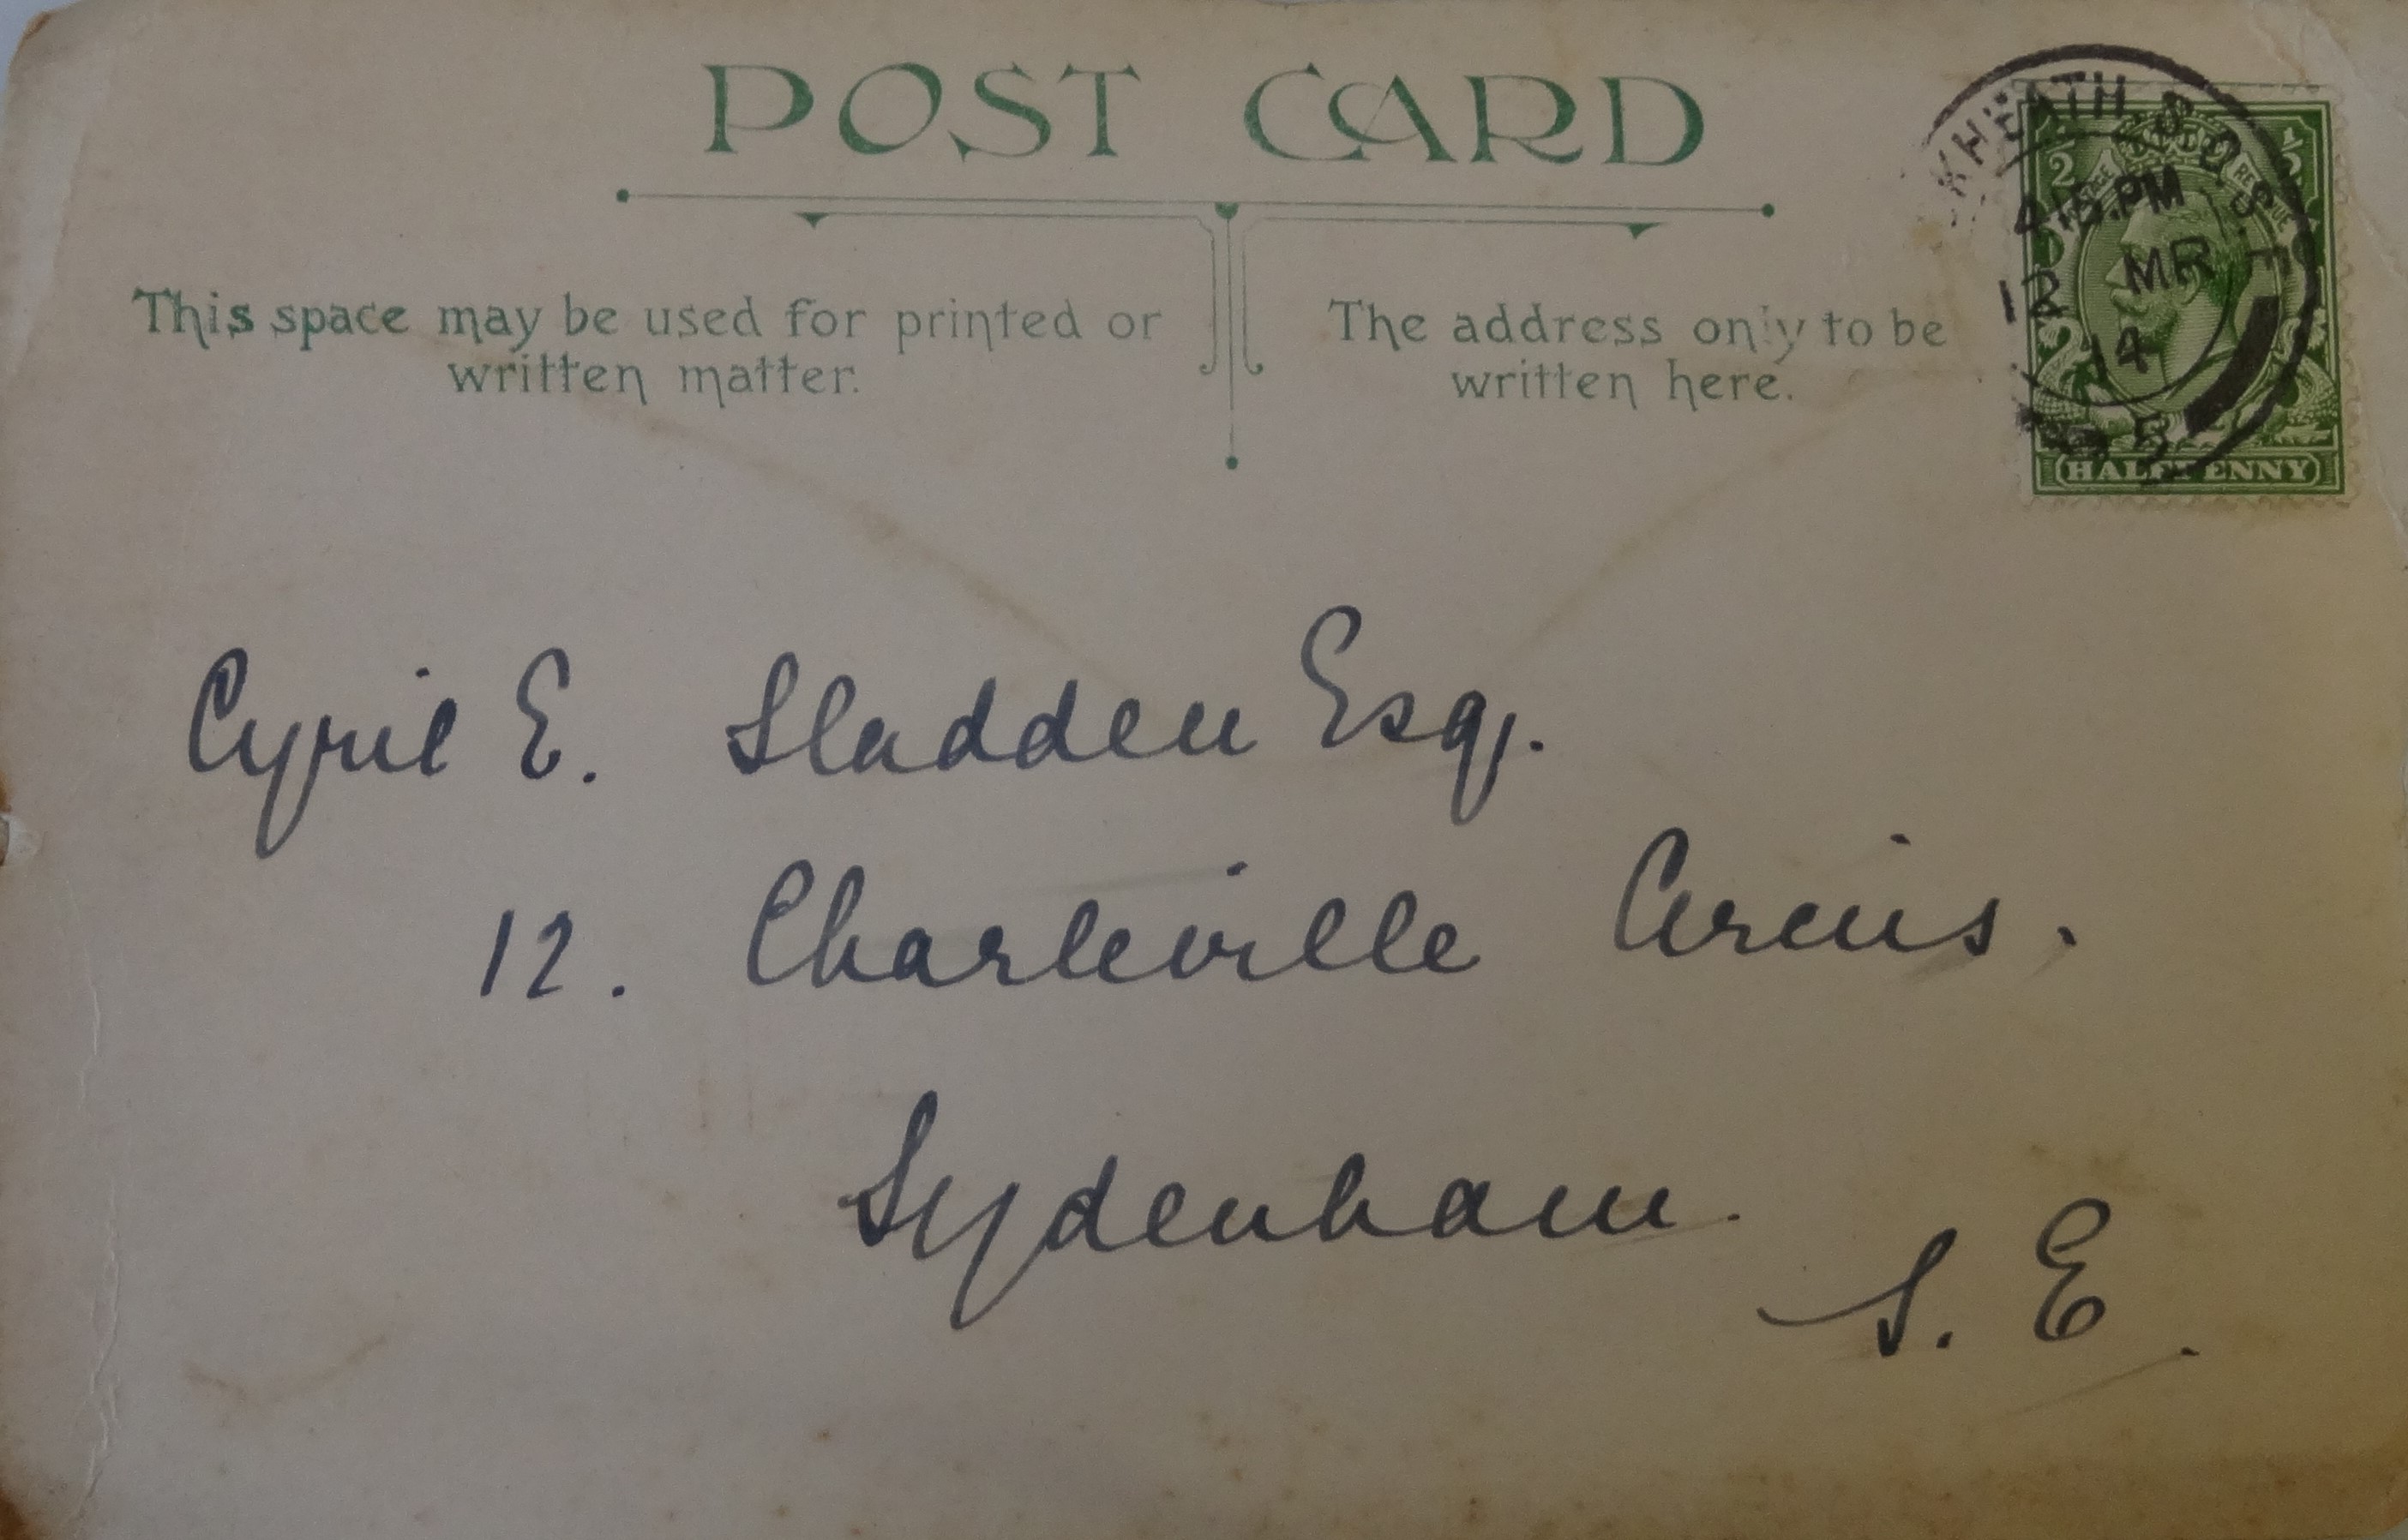 POST CARD
This space may be used for printed or
written matter.
The address only to be
written here.
KHEATH S.O. S.E
4.15.PM
12 MR
14
5
½ ½
POSTAGE REVENUE
HALFPENNY
Cyril E. Sladden Esq.
12. Charleville Circus.
Sydenham.
S.E.